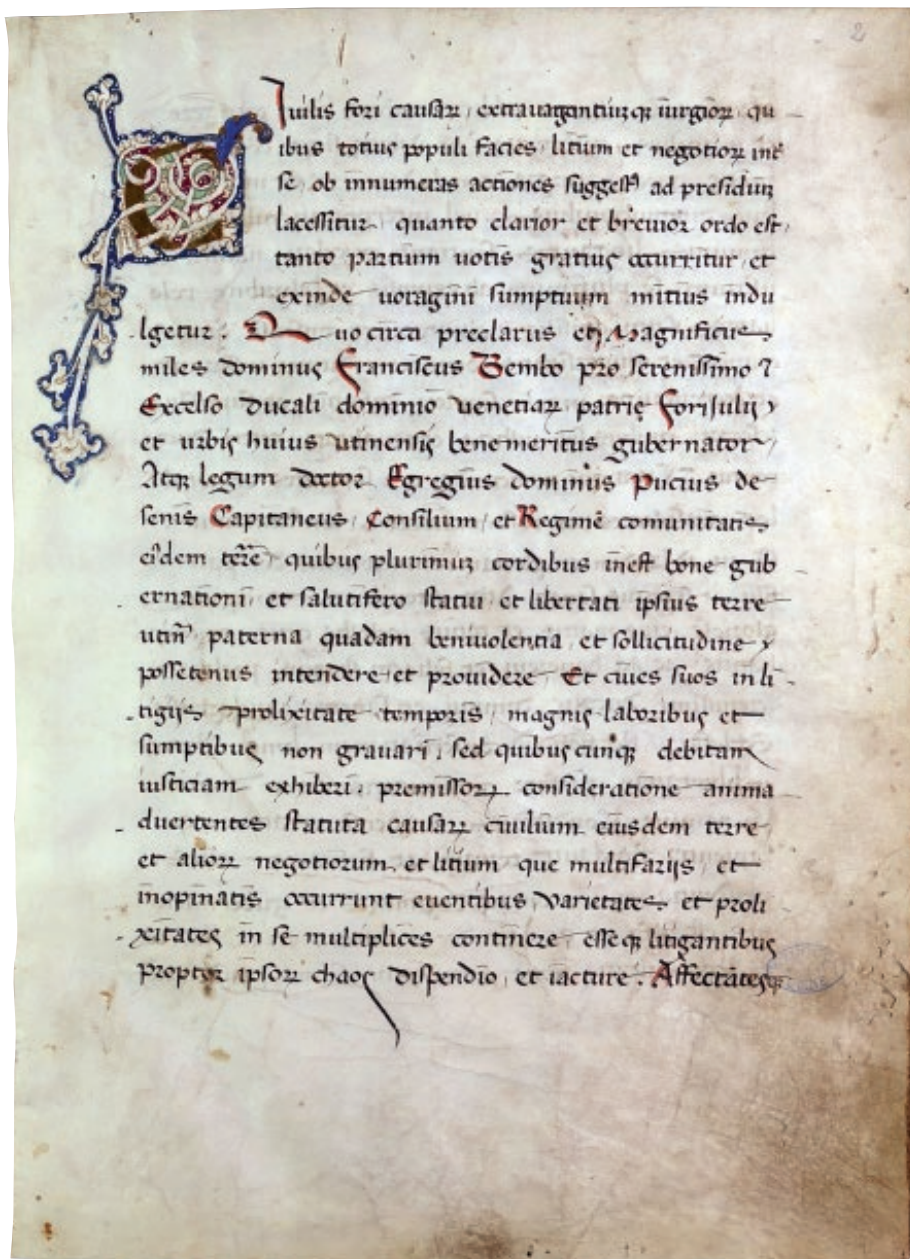 2
Ciuilis fori causaꝝ extravagantiuꝫqꝫ iurgioꝝ qu
ibus totius populi facies litium et negotioꝝ int̄
se ob innumeras actiones ad presiduꝫ
lacessitur quanto clarior et brevior ordo est
tanto partium uotis gratius occurritur et
exinde uoragini sumptuum mitius indu
lgetur. Quocirca preclarus et Magnificus
miles dominus Franciscus Bembo pro serenissimo ⁊
Excelso ducali dominio venetiaꝝ patrię foriJulij
et urbis huius utinensis benemeritus gubernator
Atqꝫ legum doctor Egregius dominus Pucius de
senis Capitaneus Consilium et Regimē comunitatis
eidem terre quibus plurimuꝫ cordibus inest bone gub
ernationi et salutifero statui et libertati ipsius terre
utin̄ paterna quadam beniuolentia et sollicitudine
possetenus intendere et prouidere Et ciues suos in li
tigijs prolixitate temporis magnis laboribus et
sumptibus non gravari sed quibuscunqꝫ debitam
iusticiam exhiberi. premissoꝝ consideratione anima
duertentes statuta causaꝝ ciuilium eiusdem terre
et alioꝝ negotiorum et litium que multifarijs et
inopinatis occurrunt euentibus varietates et proli
xitates in se multiplices continere esseqꝫ litigantibus
propter ipsoꝝ chaos dispendio et iacture. Affectātesqꝫ